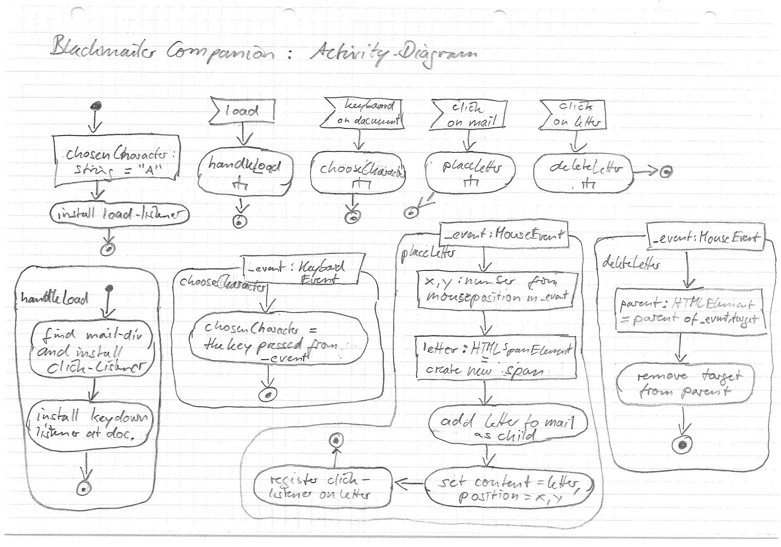 Blackmailer Companion: Activity-Diagram
chosenCharacter:
string = "A"
install load-listener
load
handleLoad
keyboard
on document
chooseCharacter
click
on mail
placeLetter
click
on letter
deleteLetter
handleLoad
find mail-div
and install
click-Listener
install keydown
listener at doc.
_event: Keyboard
Event
chooseCharacter
chosenCharacter =
the key pressed from
_event
_event: MouseEvent
placeLetter
x, y: number from
mouseposition in _event
letter: HTMLSpanElement
=
create new span
add letter to mail
as child
set content = letter,
position = x, y
register click-
listener on letter
_event: MouseEvent
deleteLetter
parent: HTMLElement
= parent of _event.target
remove target
from parent